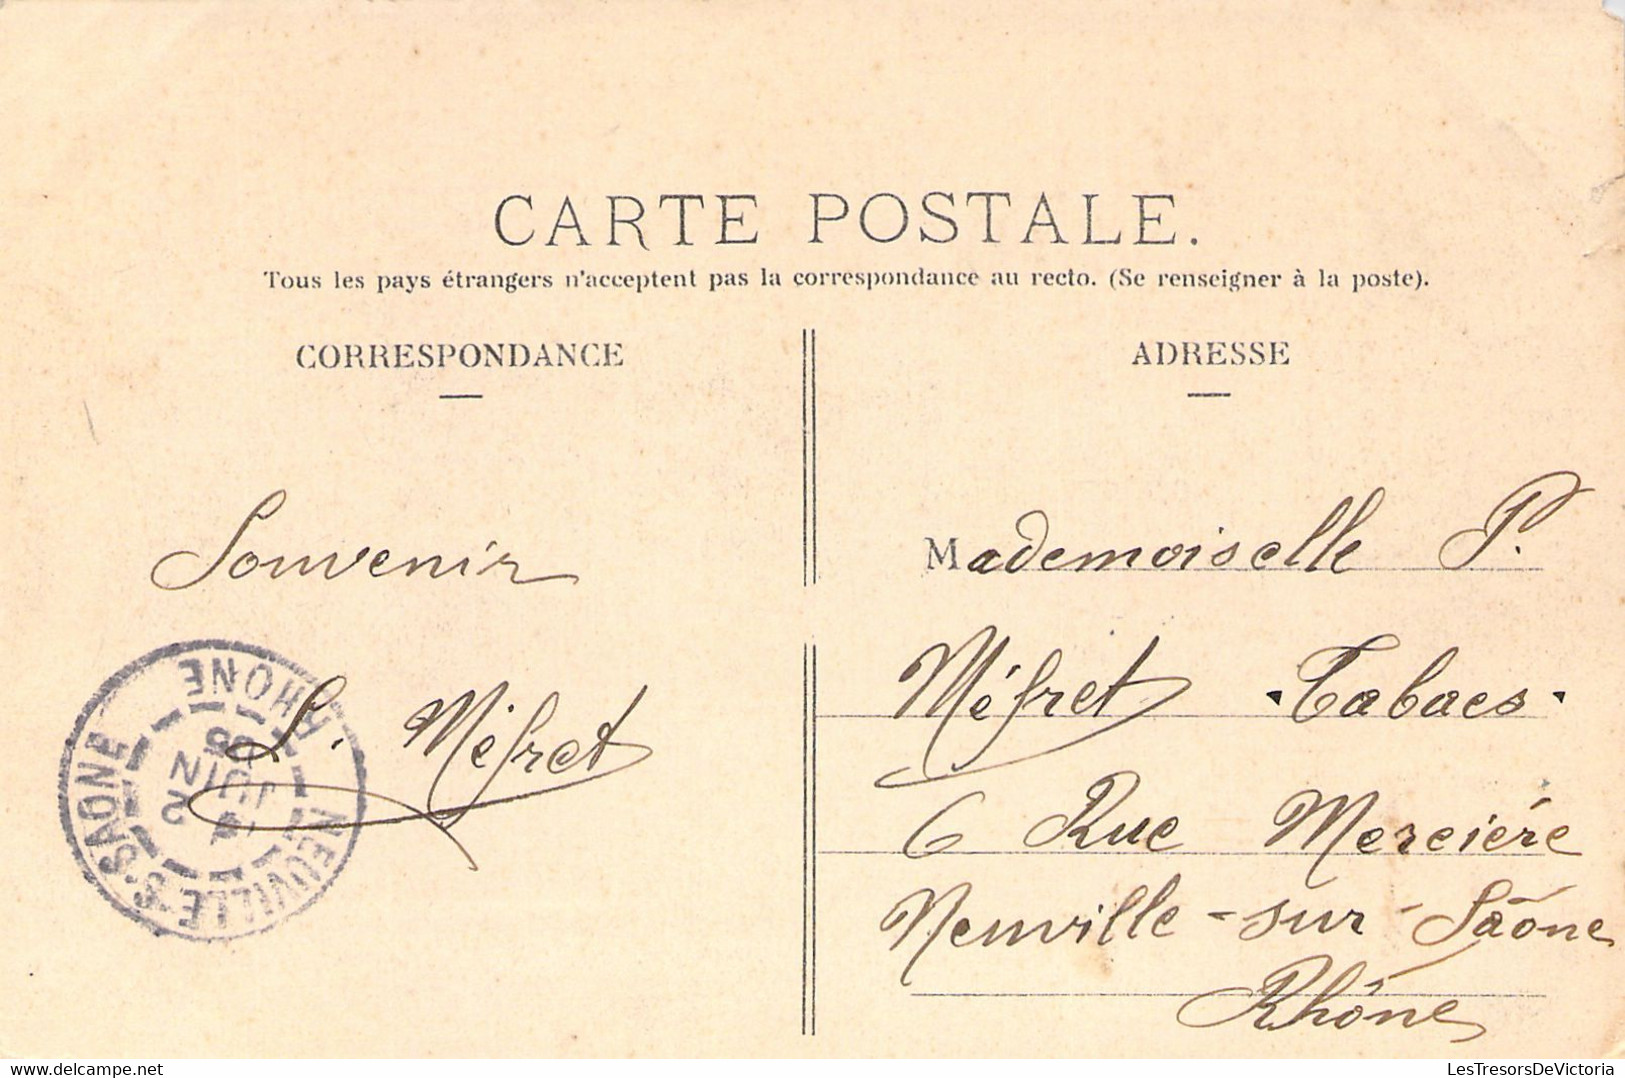 CARTE POSTALE.
Tous les pays étrangers n'acceptent pas la correspondance au recto. (Se renseigner à la poste).
CORRESPONDANCE
Souvenir
L. Méfret
NEUVILLE-S-SAÔNE
RHONE
2
JUIN
ADRESSE
Mademoiselle P.
Méfret - Tabacs -
6 Rue Mercière
Neuville-sur-Saône
Rhône
LesTresorsDeVictoria